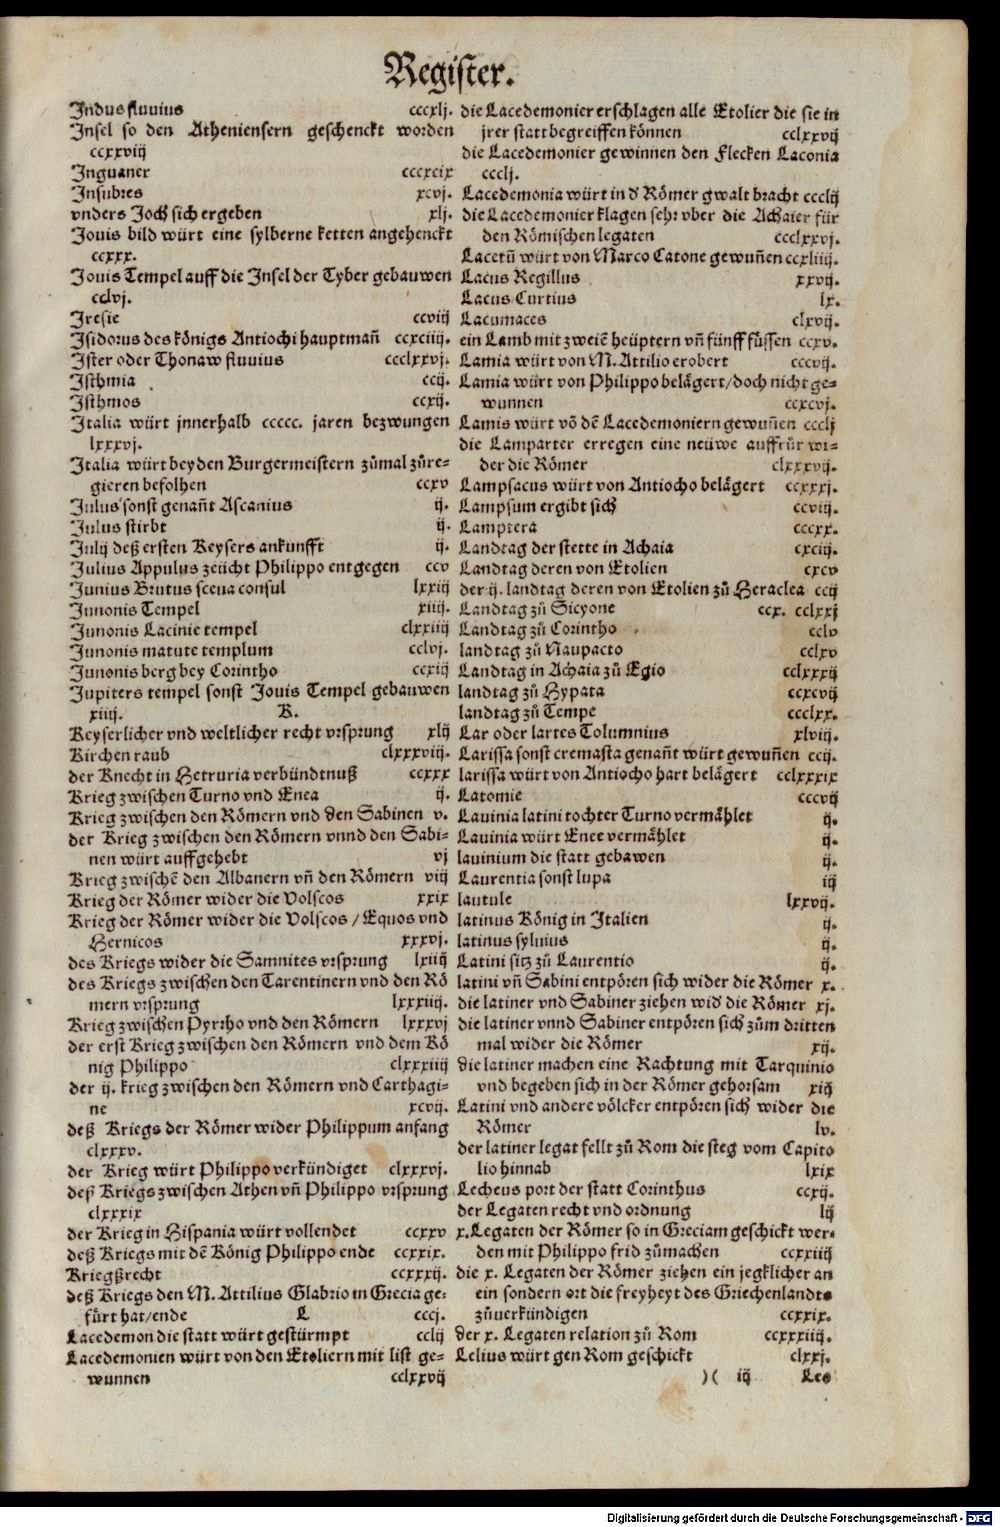 Register.
Indus fluuius cccxlj.
Insel so den Atheniensern geschenckt worden
ccxxviij
Inguaner cccxcix
Insubres xcvj.
vnders Joch sich ergeben xlj.
Jouis bild würt eine sylberne ketten angehenckt
ccxxx.
Jouis Tempel auff die Insel der Tyber gebauwen
cclvj.
Iresie ccviij
Isidorus des königs Antiochi hauptmañ ccxciiij.
Ister oder Thonaw fluuius ccclxxvj.
Isthmia ccij.
Isthmos ccxij.
Italia würt jnnerhalb ccccc. jaren bezwungen
lxxxvj.
Italia würt beyden Burgermeistern zůmal zůre-
gieren befolhen ccxv
Julus sonst genañt Ascanius ij.
Julus stirbt ij.
Julij deß ersten Keysers ankunfft ij.
Julius Appulus zeücht Philippo entgegen ccv
Junius Brutus sceua consul lxxiij
Junonis Tempel xiiij.
Junonis Lacinie tempel clxxiiij
Junonis matute templum cclvj.
Junonis berg bey Corintho ccxiij
Jupiters tempel sonst Jouis Tempel gebauwen
xiiij. K.
Keyserlicher vnd weltlicher recht vrsprung xlij
Kirchen raub clxxxviij.
der Knecht in Hetruria verbündtnuß ccxxx
Krieg zwischen Turno vnd Enea ij.
Krieg zwischen den Römern vnd den Sabinen v.
der Krieg zwischen den Römern vnnd den Sabi-
nen würt auffgehebt vj
Krieg zwischē den Albanern vñ den Römern viij
Krieg der Römer wider die Volscos xxix
Krieg der Römer wider die Volscos / Equos vnd
Hernicos xxxvj.
des Kriegs wider die Samnites vrsprung lxiij
des Kriegs zwischen den Tarentinern vnd den Rö
mern vrsprung lxxxiij.
Krieg zwischen Pyrrho vnd den Römern lxxxvj
der erst Krieg zwischen den Römern vnd dem Kö
nig Philippo clxxxiiij
der ij. krieg zwischen den Römern vnd Carthagi-
ne xcvij.
deß Kriegs der Römer wider Philippum anfang
clxxxv.
der Krieg würt Philippo verkündiget clxxxvj.
deß Kriegs zwischen Athen vñ Philippo vrsprung
clxxxix
der Krieg in Hispania würt vollendet ccxxv
deß Kriegs mit dē König Philippo ende ccxxix.
Kriegßrecht ccxxxij.
deß Kriegs den M. Attilius Glabrio in Grecia ge-
fürt hat/ende L cccj.
Lacedemon die statt würt gestürmpt cclij
Lacedemonien würt von den Etoliern mit list ge-
wunnen cclxxvij
die Lacedemonier erschlagen alle Etolier die sie in
jrer statt begreiffen können cclxxvij
die Lacedemonier gewinnen den Flecken Laconia
ccclj.
Lacedemonia würt in d' Römer gwalt bracht ccclij
die Lacedemonier klagen sehr vber die Achaier für
den Römischen legaten ccclxxvj.
Lacetū würt von Marco Catone gewuñen ccxliiij.
Lacus Regillus xxvij.
Lacus Curtius lx.
Lacumaces clxvij.
ein Lamb mit zweiē heüptern vñ fünff füssen ccxv.
Lamia würt von M. Attilio erobert cccvij.
Lamia würt von Philippo belägert/doch nicht ge-
wunnen ccxcvj.
Lamis würt vō dē Lacedemoniern gewuñen ccclj
die Lamparter erregen eine neüwe auffrůr wi-
der die Römer clxxxvij.
Lampsacus würt von Antiocho belägert ccxxxj.
Lampsum ergibt sich ccviij.
Lamptera cccxx.
Landtag der stette in Achaia cxciij.
Landtag deren von Etolien cxcv
der ij. landtag deren von Etolien zů Heraclea ccij
Landtag zů Sicyone ccx. cclxxj
Landtag zů Corintho cclv
landtag zů Naupacto cclxv
Landtag in Achaia zů Egio cclxxxij
landtag zů Hypata ccxcvij
landtag zů Tempe ccclxx.
Lar oder lartes Tolumnius xlviij.
Larissa sonst cremasta genañt würt gewuñen ccij.
larissa würt von Antiocho hart belägert cclxxxix
Latomie cccvij
Lauinia latini tochter Turno vermählet ij.
Lauinia würt Enee vermählet ij.
lauinium die statt gebawen ij.
Laurentia sonst lupa iij
lautule lxxvij.
latinus König in Italien ij.
latinus syluius ij.
Latini sitz zů Laurentio ij.
latini vñ Sabini entpören sich wider die Römer x.
die latiner vnd Sabiner ziehen wid' die Römer xj.
die latiner vnnd Sabiner entpören sich zům dritten
mal wider die Römer xij.
die latiner machen eine Rachtung mit Tarquinio
vnd begeben sich in der Römer gehorsam xiij
Latini vnd andere völcker entpören sich wider die
Römer lv.
der latiner legat fellt zů Rom die steg vom Capito
lio hinnab lxix
Lecheus port der statt Corinthus ccxij.
der Legaten recht vnd ordnung lij
x. Legaten der Römer so in Greciam geschickt wer-
den mit Philippo frid zůmachen ccxxiij
die x. Legaten der Römer ziehen ein jegklicher an
ein sondern ort die freyheyt des Griechenlandts
zůuerkündigen ccxxix.
der x. Legaten relation zů Rom ccxxxiiij.
Lelius würt gen Rom geschickt clxxj.
)( iij Les
Digitalisierung gefördert durch die Deutsche Forschungsgemeinschaft - DFG